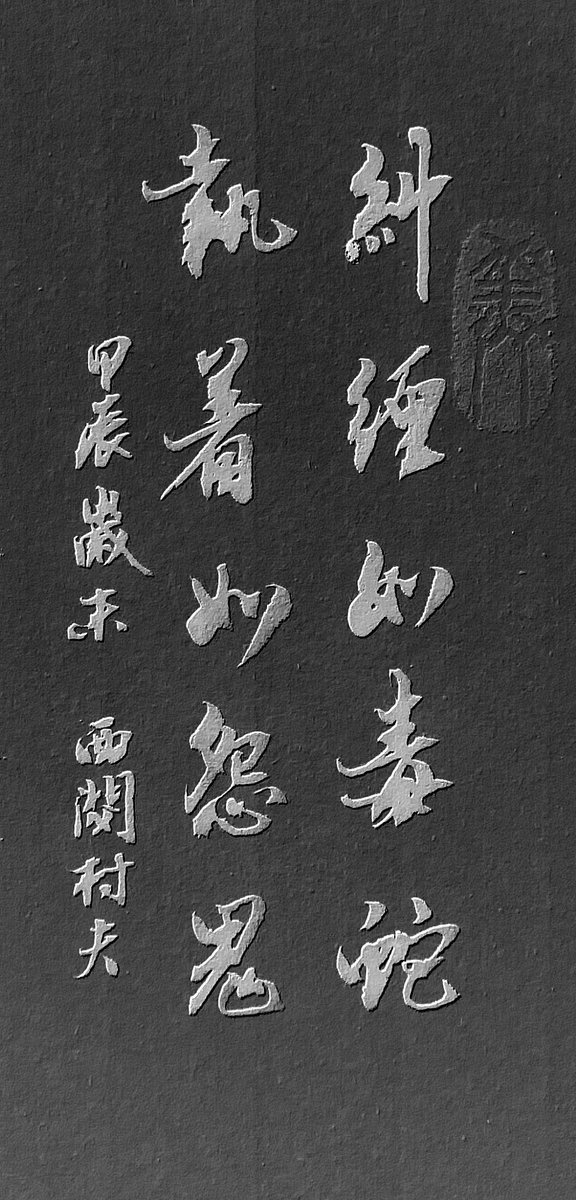 糾纏如毒蛇
執着如怨鬼
甲辰歲末 西関村夫